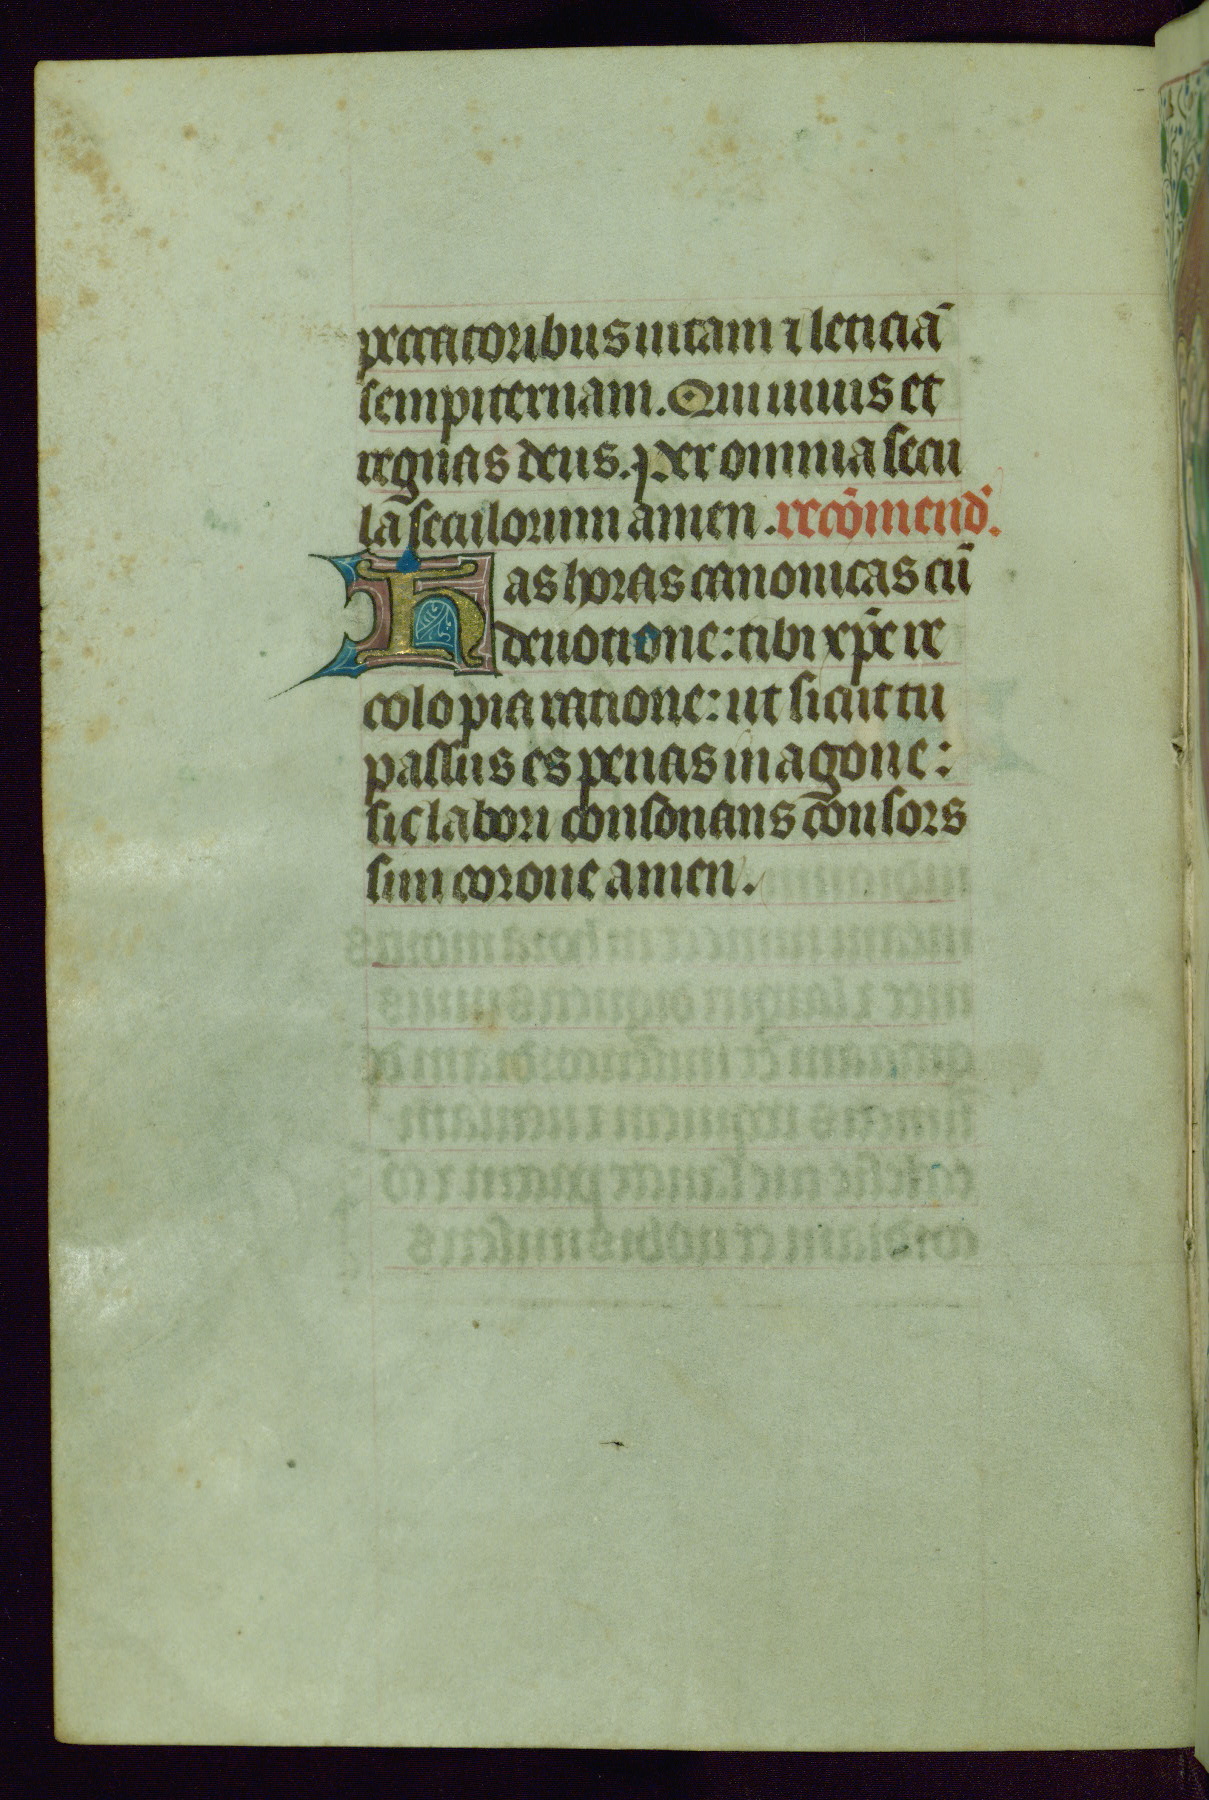 peccatoribus uitam ⁊ leticiā
sempiternam. Qui uiuis et
regnas deus. Per omnia secu
la seculorum amen. recōmend'.
Has horas canonicas cū
deuotione: tibi xp̄e re
colo pia ratione: ut sicut tu
passus es penas in agone:
sic labori consonans consors
sim corone amen.